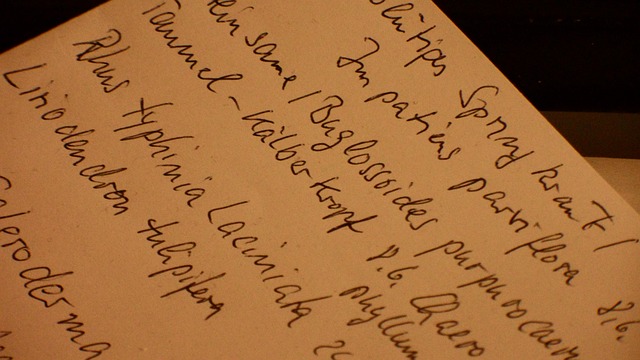 blütiges Springkraut /
Impatiens parviflora 8.6.
einsame / Buglossoides purpurocaer
Taumel-Kälberkropf 8.6. Chaero
phyllum
Rhus typhinia Laciniata
Liriodendron tulipifera
Scleroderma